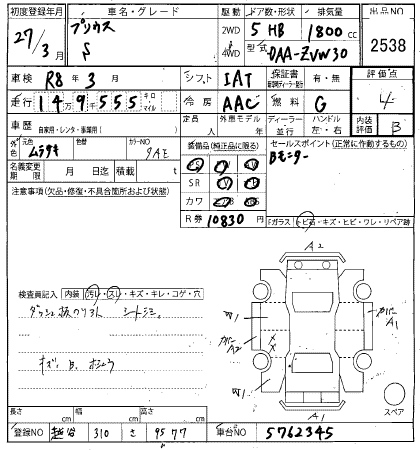 初度登録年月 車名・グレード 駆動 ドア数・形状 排気量 出品NO
27/3月 プリウス S 2WD 4WD 5 HB 1800cc 2538
型式 DAA-ZVW30
車検 R8年3月 シフト IAT 保証書 有・無 評価点
走行 149555 キロ マイル 冷房 AAC 燃料 G 4
車歴 自家用・レンタ・事業用( ) 定員 人 外車モデル 年 ディーラー 並行 ハンドル 左・右 内装評価 B
外色 元色 ムラサキ 色替 カラーNO 9AE 装備品(純正品に限る) セールスポイント(正常に作動するもの)
名義変更期限 月 日迄 積載 t Bモニター
注意事項(欠品・修復・不具合箇所および状態) SR
カワ
R券 10830円 Fガラス トビ石・キズ・ヒビ・ワレ・リペア跡
A2
検査員記入 内装 汚レ・スレ・キズ・キレ・コゲ・穴
ダッシュ板クリスト シトシミ。
W1 カバー A1
W1 カバー A2
キズ、B、ホシュウ
A1
スペア
長さ cm 幅 cm 高さ cm
登録NO 越谷 310 さ 9577 車台NO 5762345